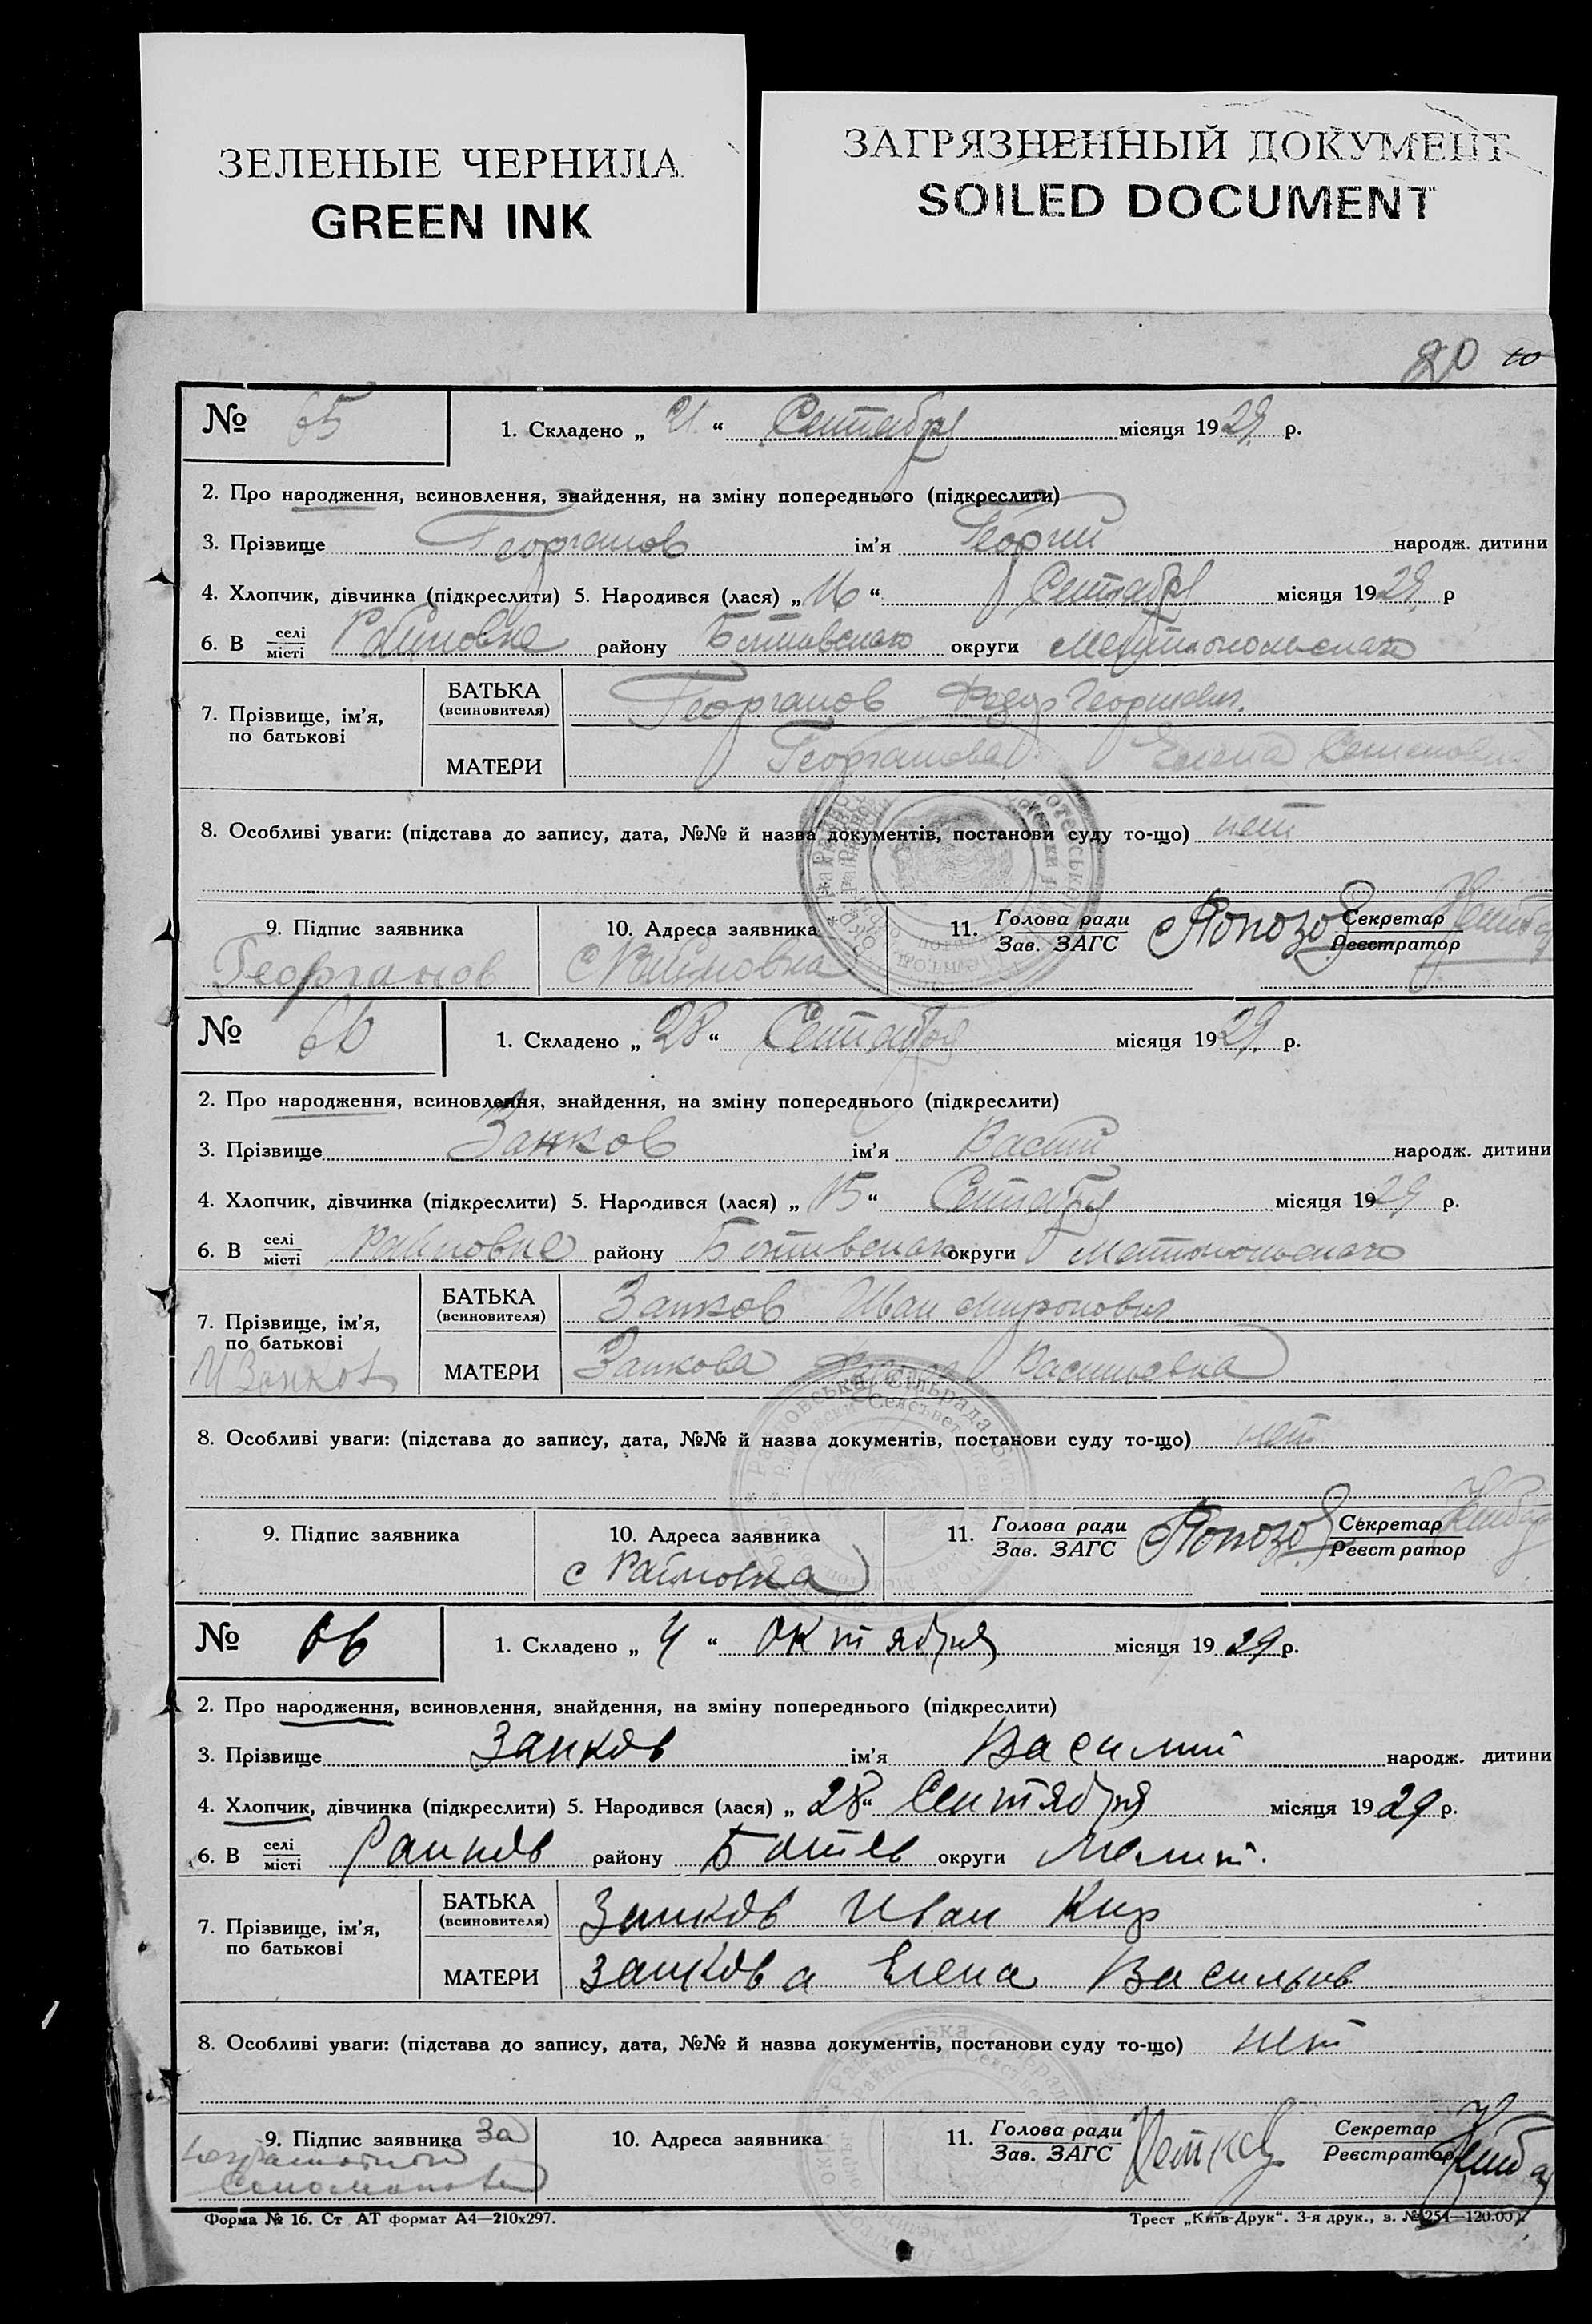 ЗЕЛЕНЫЕ ЧЕРНИЛА
GREEN INK
ЗАГРЯЗНЕННЫЙ ДОКУМЕНТ
SOILED DOCUMENT
20
№ 65 1. Складено „ 21 “ Сентабря місяця 1929 р.
2. Про народження, всиновлення, знайдення, на зміну попереднього (підкреслити)
3. Прізвище Георганов ім'я Георгий народж. дитини
4. Хлопчик, дівчинка (підкреслити) 5. Народився (лася) „ 16 “ Сентабря місяця 1929 р
6. В селі/місті Райновке району Ботивского округи Мелитопольского
7. Прізвище, ім'я, по батькові
БАТЬКА (всиновителя) Георганов Федор Георгиевич.
МАТЕРИ Георганова Елена Семеновна
8. Особливі уваги: (підстава до запису, дата, №№ й назва документів, постанови суду то-що) нет
9. Підпис заявника 10. Адреса заявника 11. Голова ради/Зав. ЗАГС Секретар/Реєстратор
Георганов с Райновка
№ 66 1. Складено „ 28 “ Сентабря місяця 1929 р.
2. Про народження, всиновлення, знайдення, на зміну попереднього (підкреслити)
3. Прізвище Занков ім'я народж. дитини
4. Хлопчик, дівчинка (підкреслити) 5. Народився (лася) „ 15 “ Сентабря місяця 1929 р.
6. В селі/місті Райновке району Ботивского округи
7. Прізвище, ім'я, по батькові
БАТЬКА (всиновителя) Занков Иван Миронович
МАТЕРИ Занкова Васильевна
И Занков
8. Особливі уваги: (підстава до запису, дата, №№ й назва документів, постанови суду то-що) нет
9. Підпис заявника 10. Адреса заявника 11. Голова ради/Зав. ЗАГС Секретар/Реєстратор
с Райновка
№ 66 1. Складено „ 4 “ октября місяця 1929 р.
2. Про народження, всиновлення, знайдення, на зміну попереднього (підкреслити)
3. Прізвище Занков ім'я Василий народж. дитини
4. Хлопчик, дівчинка (підкреслити) 5. Народився (лася) „ 28 “ Сентября місяця 1929 р.
6. В селі/місті Райнов району Ботев округи Мелит.
7. Прізвище, ім'я, по батькові
БАТЬКА (всиновителя) Занков Иван Кир
МАТЕРИ Занкова Елена Васильев
8. Особливі уваги: (підстава до запису, дата, №№ й назва документів, постанови суду то-що) нет
9. Підпис заявника За 10. Адреса заявника 11. Голова ради/Зав. ЗАГС Секретар/Реєстратор
Форма № 16. Ст АТ формат А4—210х297. Трест „Київ-Друк“. 3-я друк., з. № 254—120.00